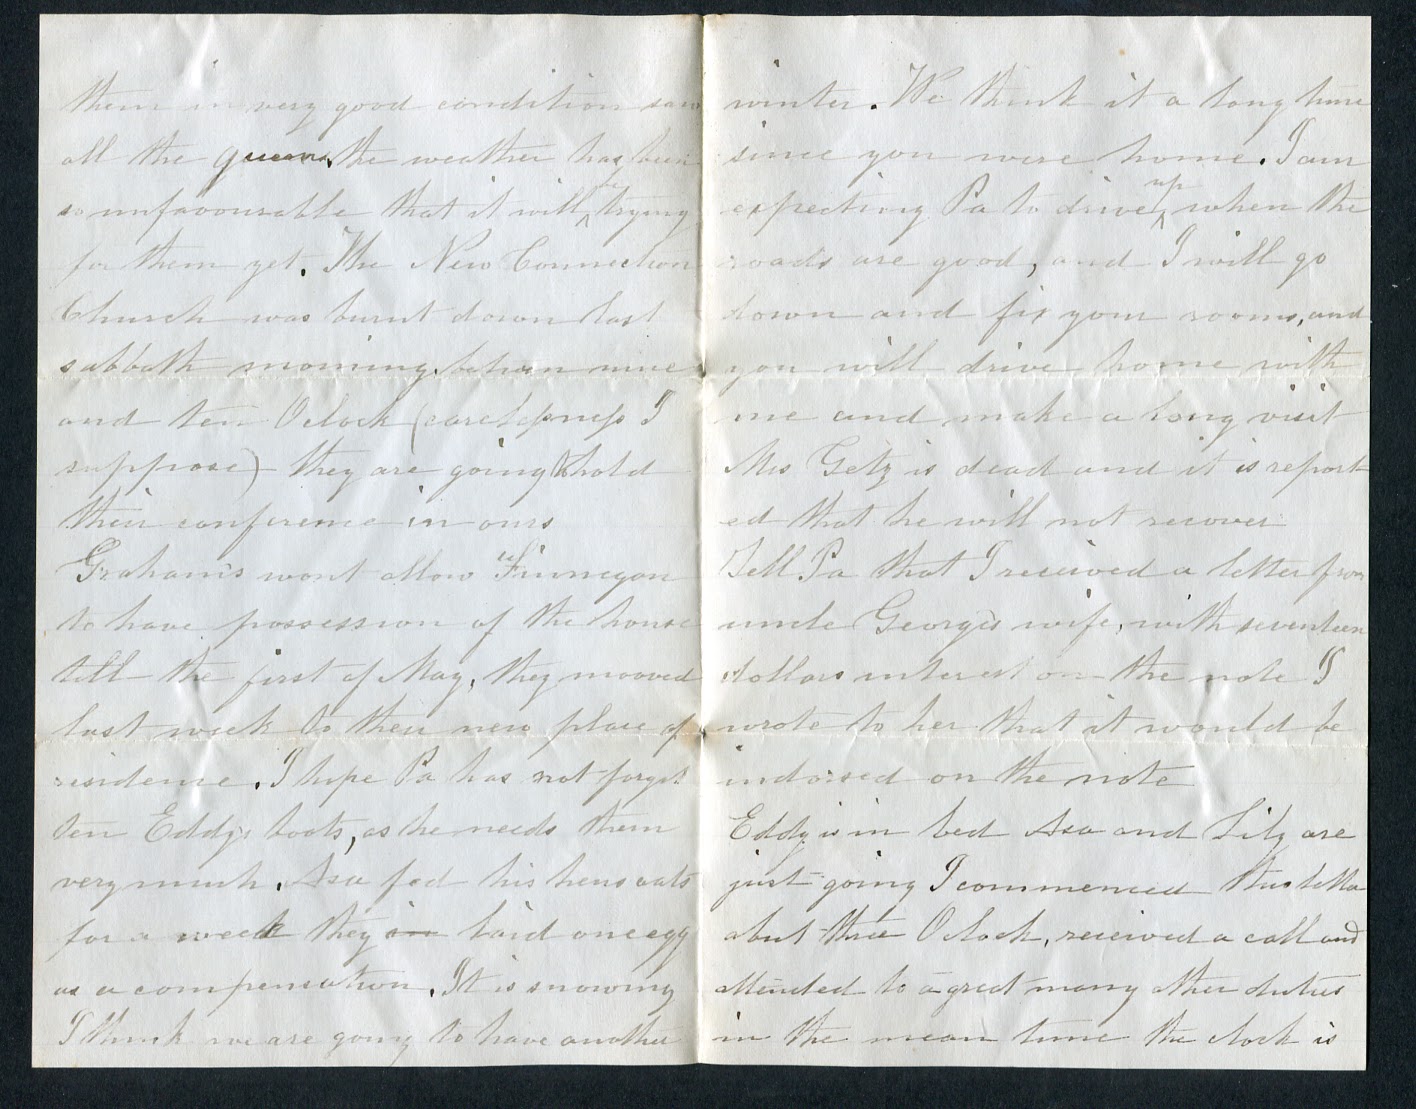 them in very good condition saw
all the queens. the weather has been
so unfavourable that it will be trying
for them yet. The New Connection
Church was burnt down last
sabbath morning. between nine
and ten O clock (carelessness I
suppose) they are going to hold
their conference in ours
Graham's wont allow Finnegan
to have possession of the house
till the first of May, they mooved
last week to their new place of
residence. I hope Pa has not forgot
ten Eddys boots, as he needs them
very much. Asa fed his hens oats
for a week they in laid one egg
as a compensation. It is snowing
I think we are going to have another
winter. We think it a long time
since you were home. I am
expecting Pa to drive up when the
roads are good, and I will go
down and fix your rooms, and
you will drive home with
me and make a long visit
Mrs Getz is dead and it is report
ed that he will not recover
Tell Pa that I received a letter from
uncle George's wife, with seventeen
dollars interest on the note I
wrote to her that it would be
indorsed on the note
Eddy is in bed Asa and Lily are
just going I commenced this letter
abut three O clock, received a call and
attended to a great many other duties
in the mean time the clock is